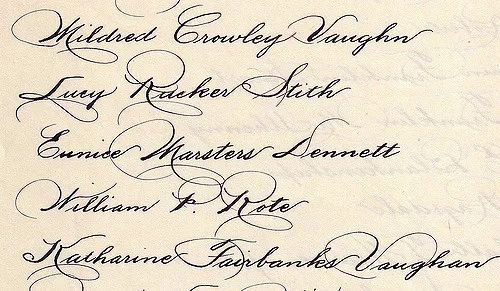 Mildred Crowley Vaughn
Lucy Racker Stith
Eunice Marsters Dennett
William P. Rote
Katharine Fairbanks Vaughan